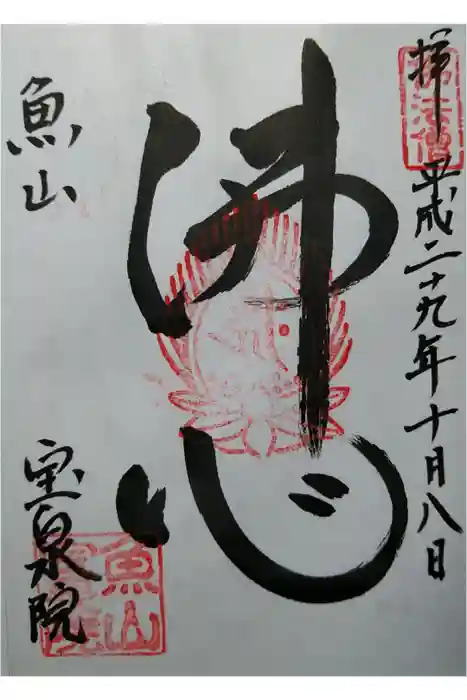 拝
平成二十九年十月八日
佛心
魚山
宝泉院
魚山